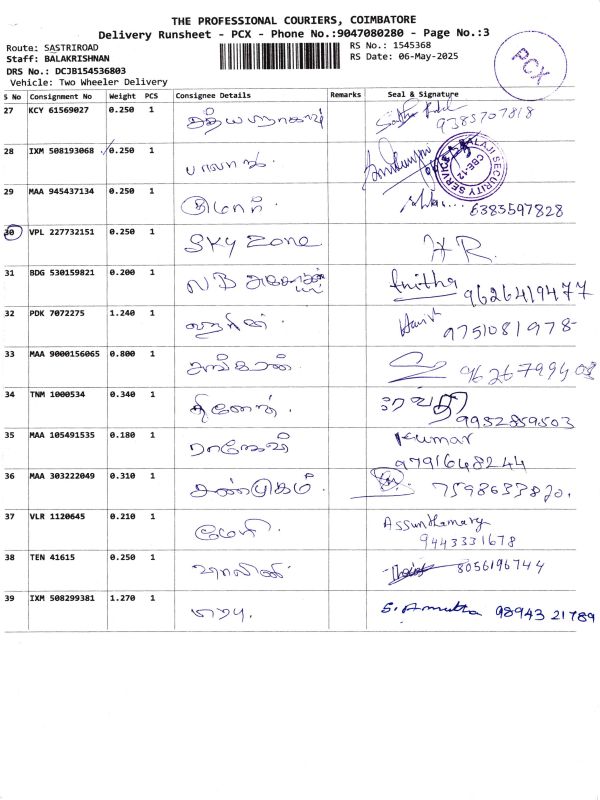 THE PROFESSIONAL COURIERS, COIMBATORE
Delivery Runsheet - PCX - Phone No.:9047080280 - Page No.:3
Route: SASTRIROAD
RS No.: 1545368
Staff: BALAKRISHNAN
RS Date: 06-May-2025
DRS No.: DCJB154536803
Vehicle: Two Wheeler Delivery
PCX
S No Consignment No Weight PCS Consignee Details Remarks Seal & Signature
27 KCY 61569027 0.250 1 சத்யநாராயண 9385707818
28 IXM 508193068 0.250 1 பாலாஜி
BALAJI SECURITY SERVICES CBE-12
29 MAA 945437134 0.250 1 6383597828
30 VPL 227732151 0.250 1 SKY Zone HR.
31 BDG 530159821 0.200 1 NB அசோசியேட் Anitha 9626419477
32 PDK 7072275 1.240 1 9751081978
33 MAA 9000156065 0.800 1 9626799403
34 TNM 1000534 0.340 1 தினேஷ். ரேவதி 9952859503
35 MAA 105491535 0.180 1 Kumar
9791648244
36 MAA 303222049 0.310 1 சண்முகம். 7598633820.
37 VLR 1120645 0.210 1 மேரி. Assunthamary
9443331678
38 TEN 41615 0.250 1 ஷாலினி 8056196744
39 IXM 508299381 1.270 1 S. Amutha 98943 21789